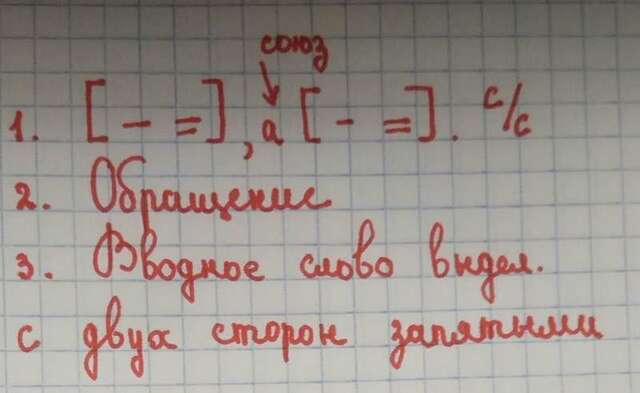 союз
1. [ — = ], а [ - = ]. с/с
2. Обращение
3. Вводное слово выдел.
с двух сторон запятыми